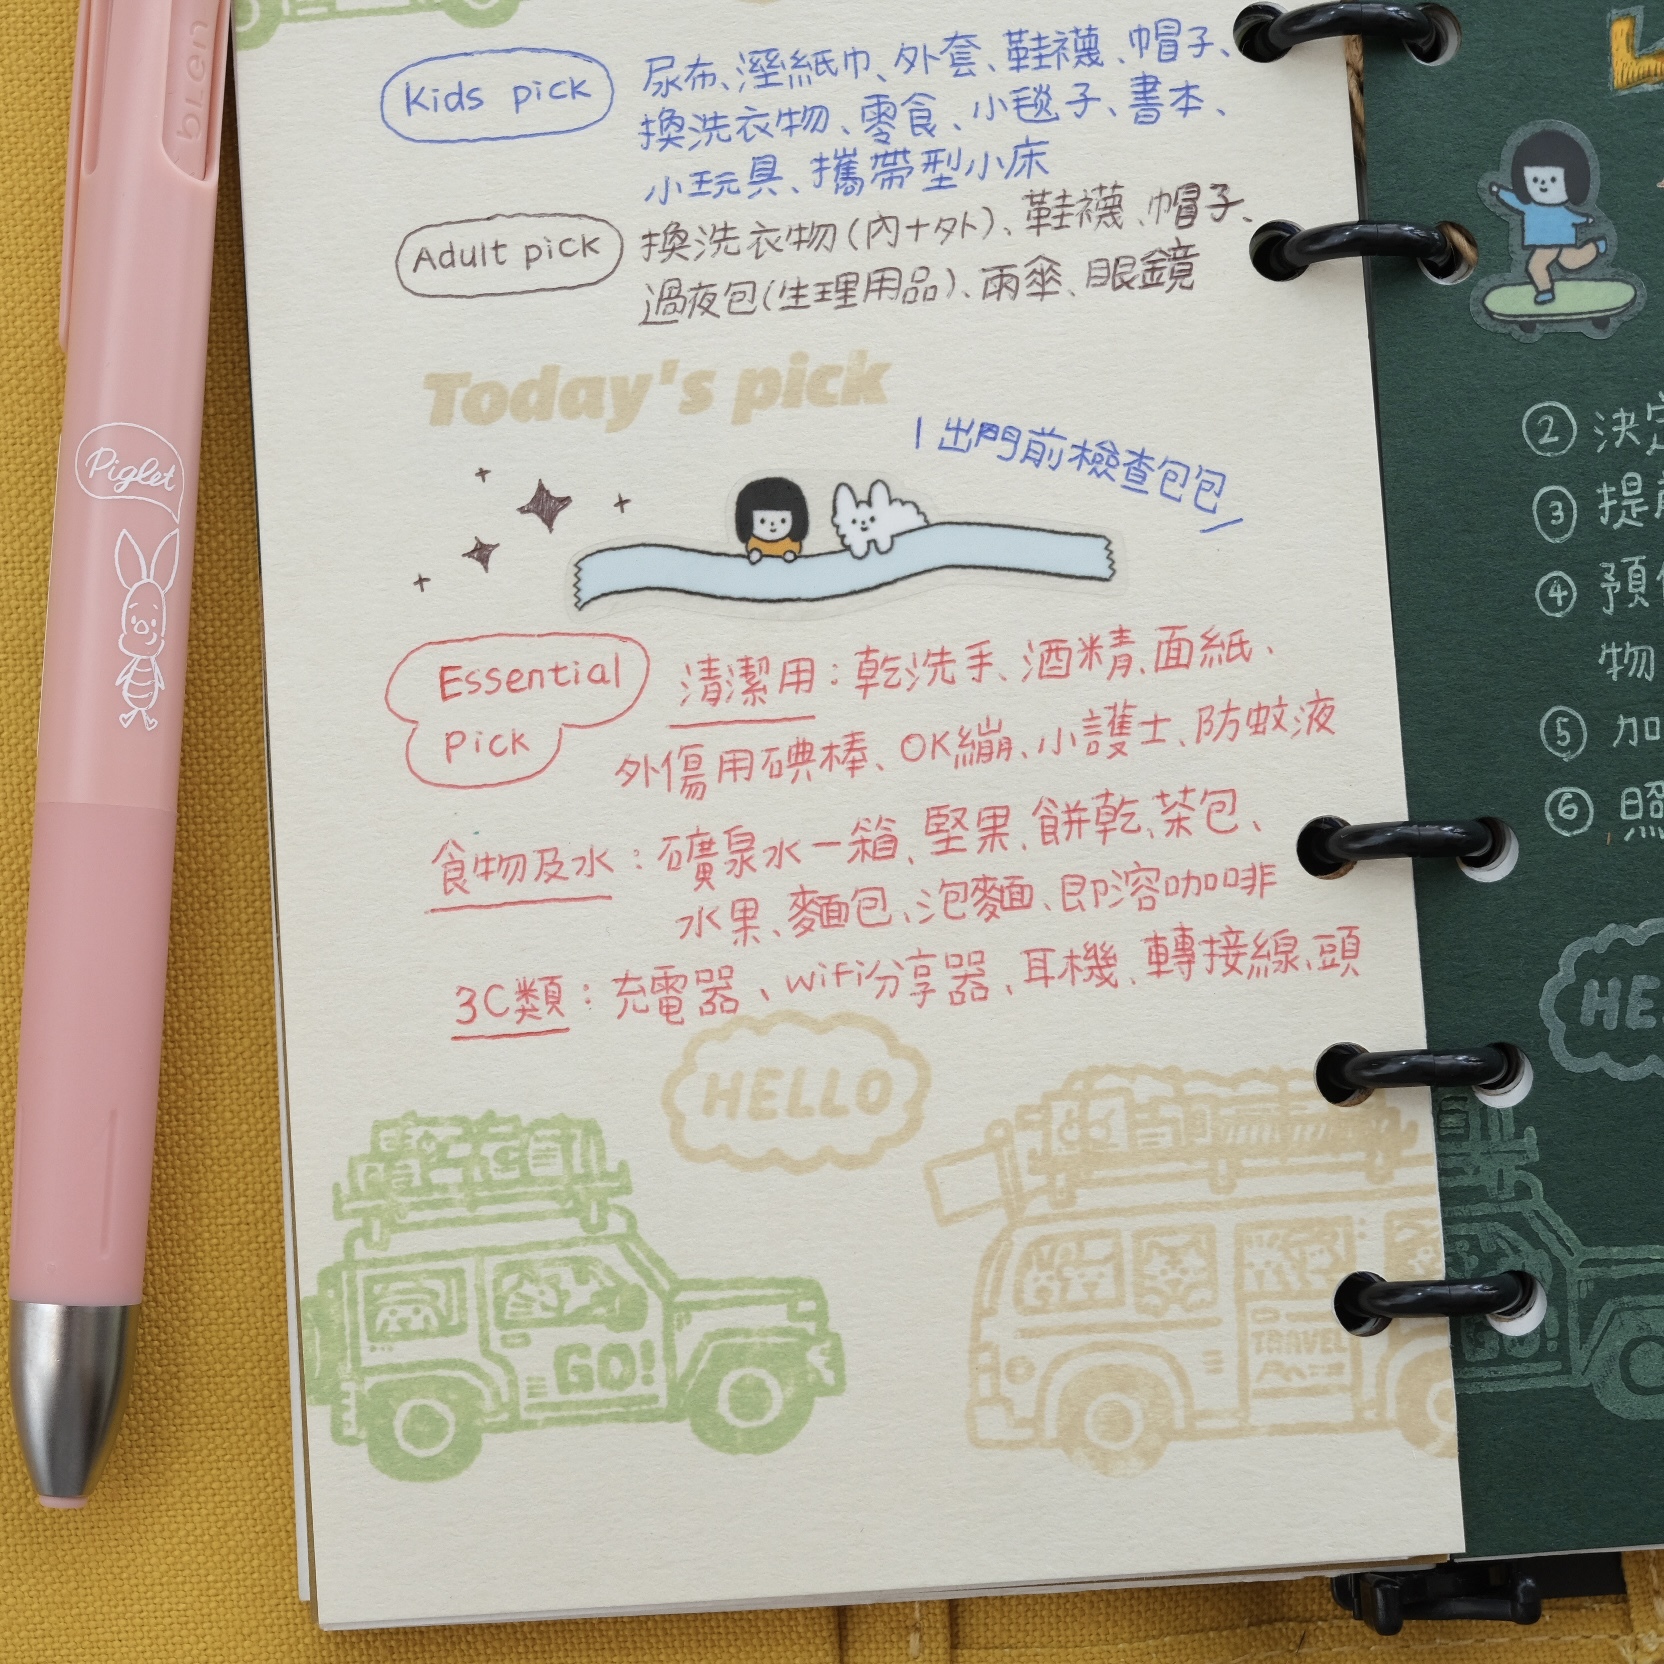 Kids pick
尿布、溼紙巾、外套、鞋襪、帽子、
換洗衣物、零食、小毯子、書本、
小玩具、攜帶型小床
Adult pick
換洗衣物(內+外)、鞋襪、帽子、
過夜包(生理用品)、雨傘、眼鏡
Today's pick
\ 出門前檢查包包 /
Essential
pick
清潔用：乾洗手、酒精、面紙、
外傷用碘棒、OK繃、小護士、防蚊液
食物及水：礦泉水一箱、堅果、餅乾、茶包、
水果、麵包、泡麵、即溶咖啡
3C類：充電器、wifi分享器、耳機、轉接線、頭
HELLO
GO!
TRAVEL
bLen
Piglet
② 決定
③ 提前
④ 預備
物
⑤ 加
⑥ 照
HE